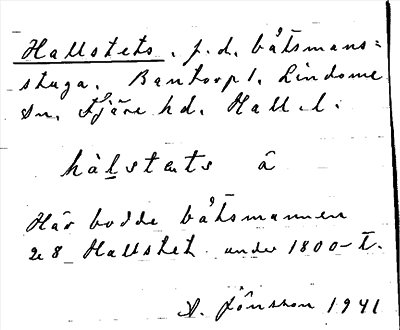 Hallstets, f.d. båtsmans=
stuga. Bantorp 1, Lindome
sn, Fjäre hd, Hall. l.
hàlstæts â
Här bodde båtsmannen
28 Hallstet under 1800-t.
A. Jönsson 1941